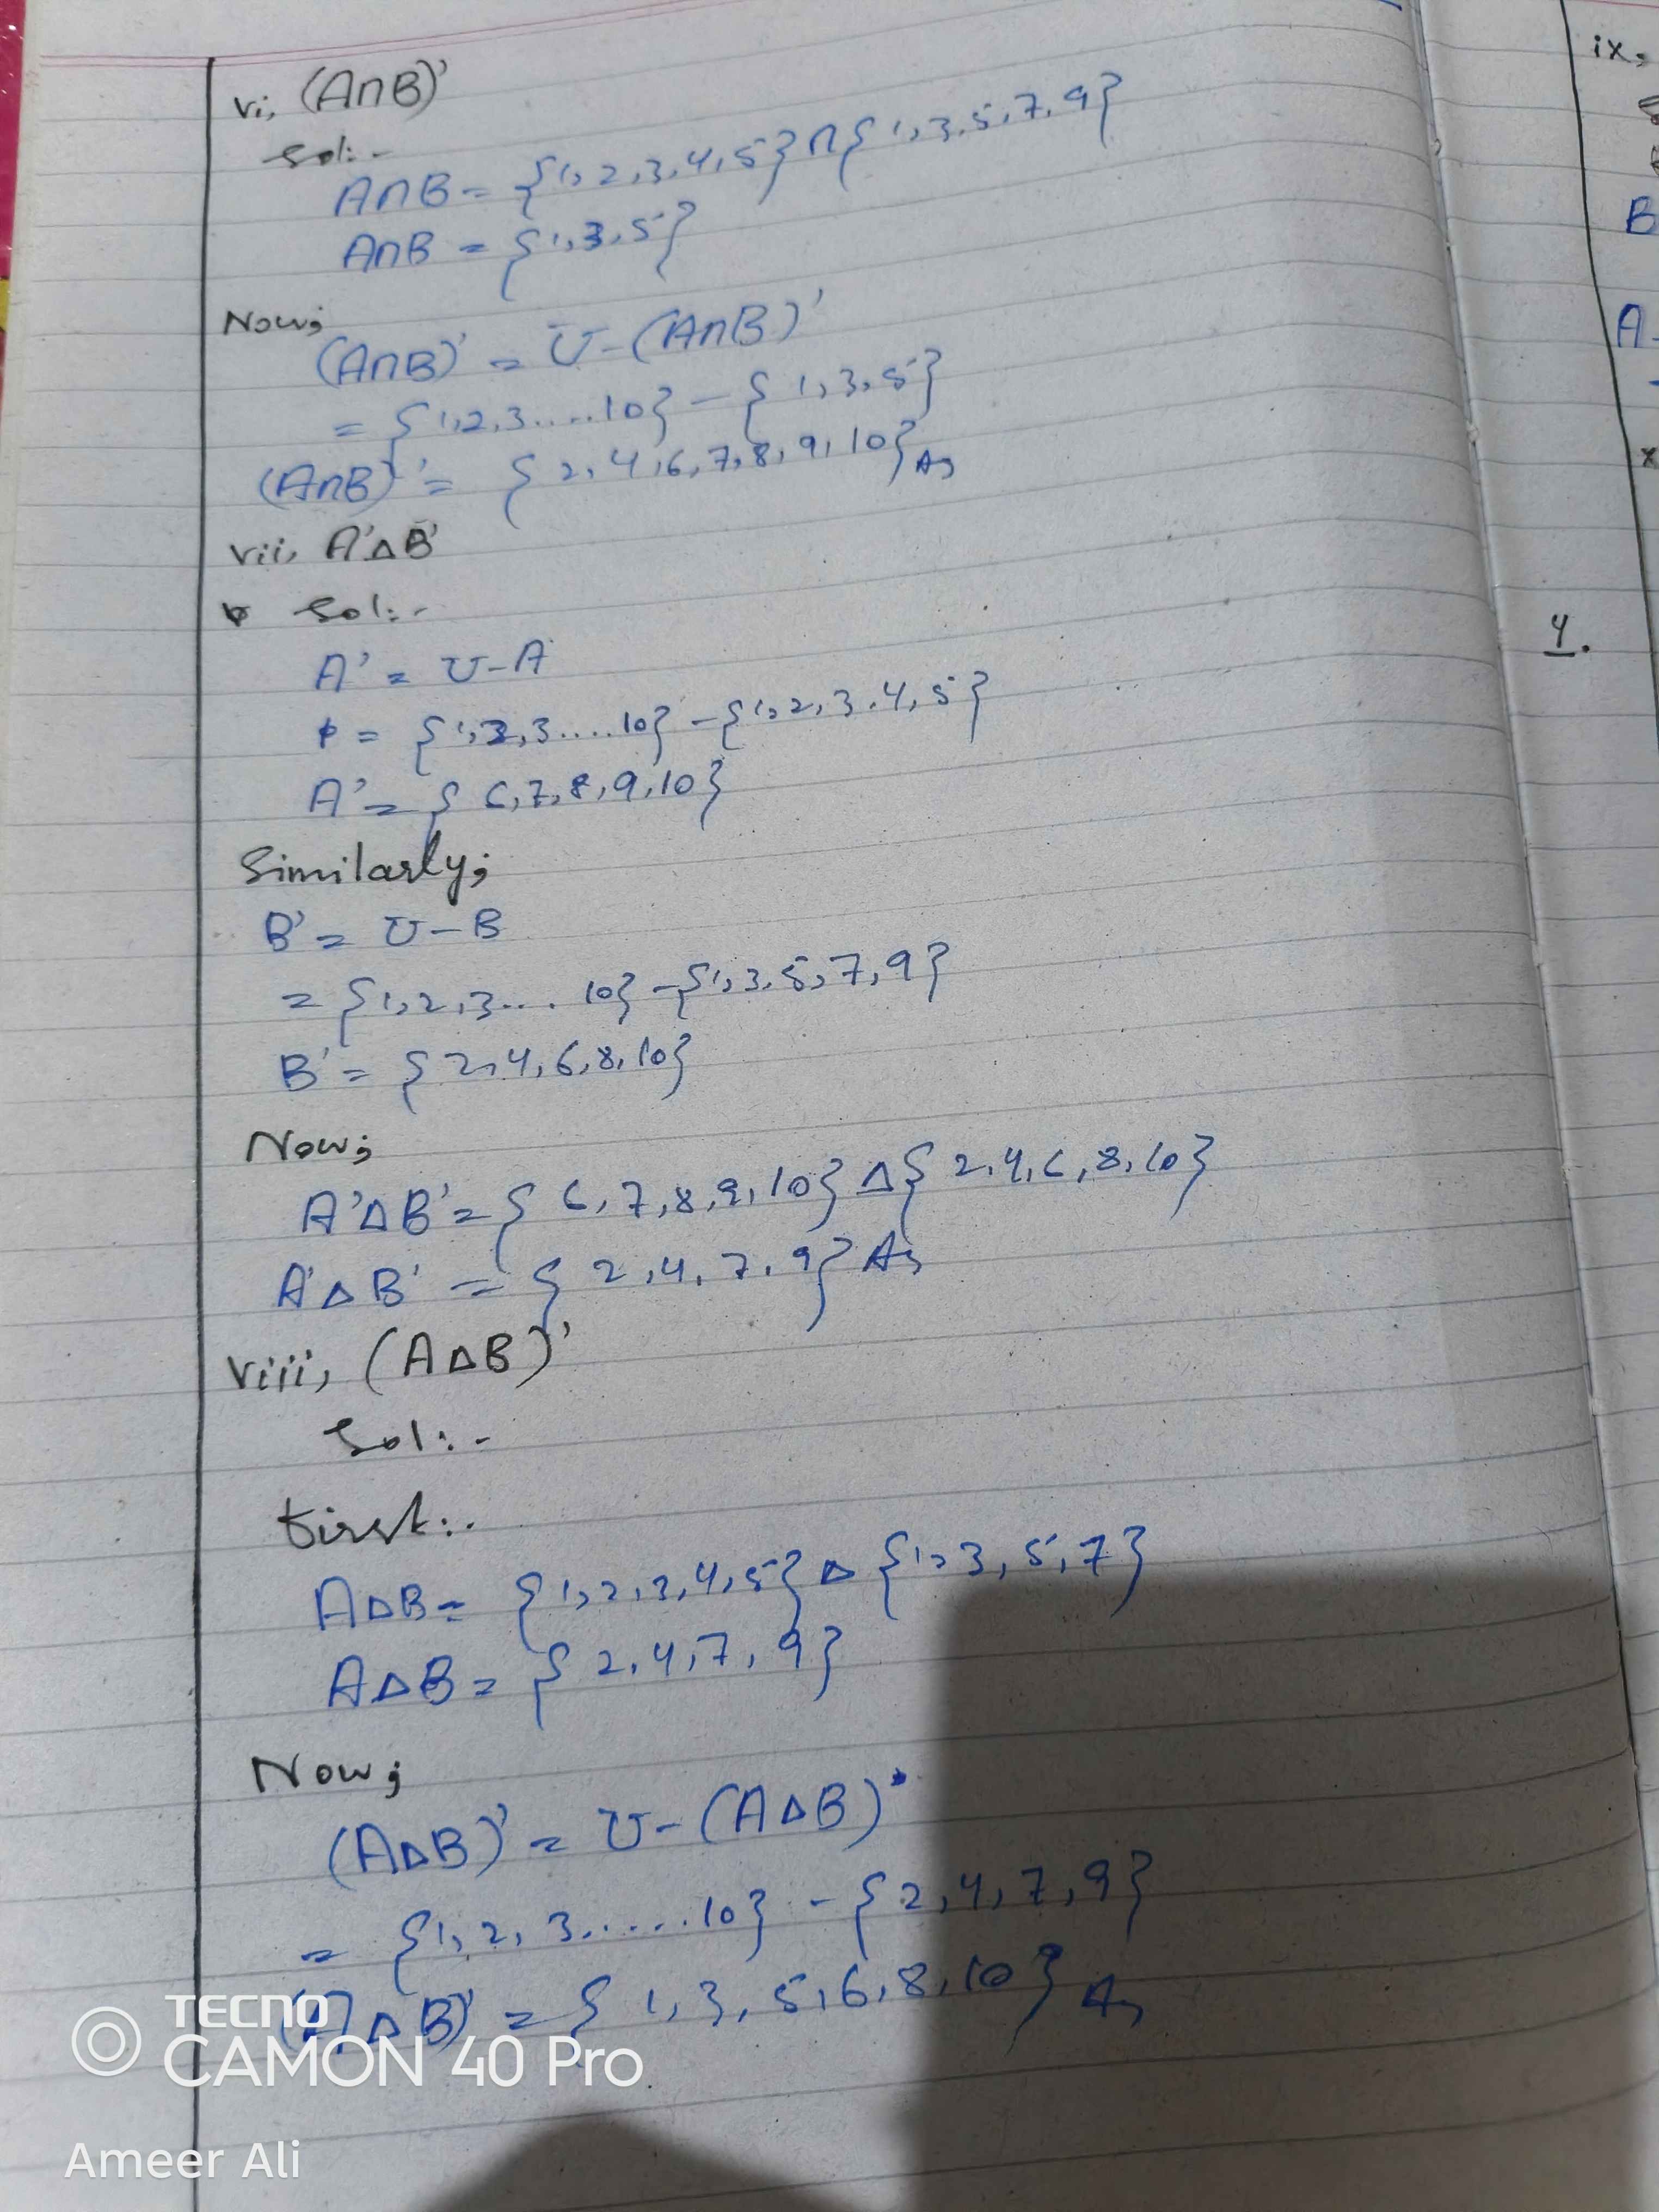 vi, (A∩B)'
Sol:-
A∩B = {1, 2, 3, 4, 5} ∩ {1, 3, 5, 7, 9}
A∩B = {1, 3, 5}
Now;
(A∩B)' = U - (A∩B)'
= {1, 2, 3.....10} - {1, 3, 5}
(A∩B)' = {2, 4, 6, 7, 8, 9, 10} As
vii, A'△B'
Sol:-
A' = U - A
= {1, 2, 3.....10} - {1, 2, 3, 4, 5}
A' = {6, 7, 8, 9, 10}
Similarly;
B' = U - B
= {1, 2, 3.... 10} - {1, 3, 5, 7, 9}
B' = {2, 4, 6, 8, 10}
Now;
A'△B' = {6, 7, 8, 9, 10} △ {2, 4, 6, 8, 10}
A'△B' = {2, 4, 7, 9} As
viii, (A△B)'
Sol:-
first:-
A△B = {1, 2, 3, 4, 5} △ {1, 3, 5, 7}
A△B = {2, 4, 7, 9}
Now;
(A△B)' = U - (A△B)
= {1, 2, 3......10} - {2, 4, 7, 9}
(A△B)' = {1, 3, 5, 6, 8, 10} As
ix,
B
A-
x
4.
TECNO
CAMON 40 Pro
Ameer Ali